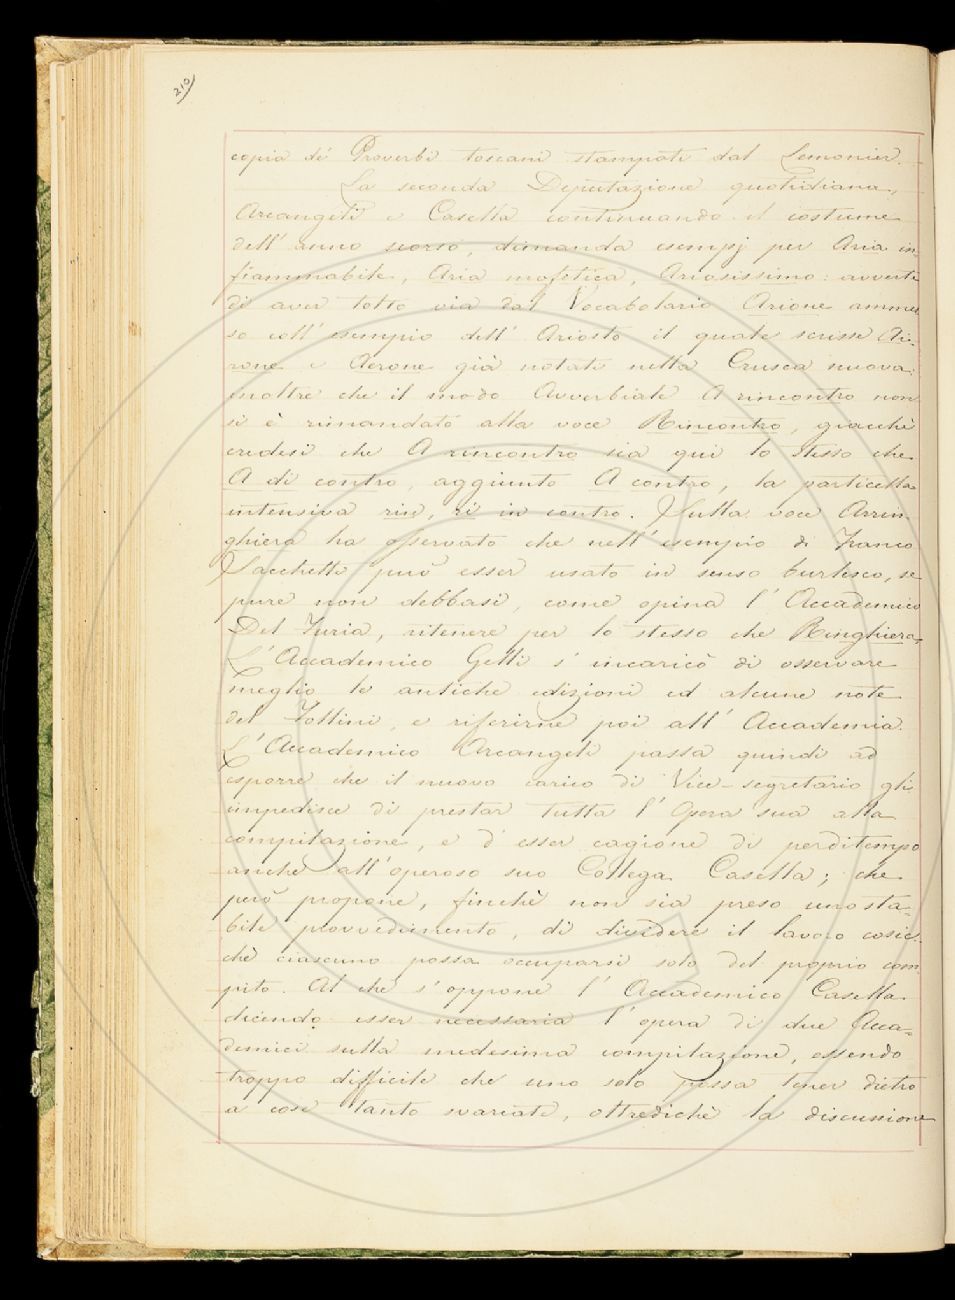 210
copia de' Proverbi toscani stampati dal Lemonier.
La seconda Deputazione quotidiana,
Arcangeli e Casella continuando il costume
dell' anno scorso, dimanda esempj per Aria in-
fiammabile, Aria mofetica, Ariosissimo: avverte
di aver tolto via dal Vocabolario Arione ammes
so coll' esempio dell' Ariosto il quale scrisse Ai-
rone e Aerone già notati nella Crusca nuova:
inoltre che il modo Avverbiale A rincontro non
si è rimandato alla voce Rincontro, giacchè
credesi che A rincontro sia qui lo stesso che
A di contro, aggiunto A contro, la particella
intensiva rin, ri in contro. Sulla voce Arrin-
ghiera ha osservato che nell' esempio di Franco
Sacchetti può esser usato in senso burlesco, se
pure non debbasi, come opina l' Accademico
Del Furia, ritenere per lo stesso che Ringhiera,
L' Accademico Gelli s' incaricò di osservare
meglio le antiche edizioni ed alcune note
del Follini, e riferirne poi all' Accademia.
L' Accademico Arcangeli passa quindi ad
esporre che il nuovo carico di Vice-segretario gli
impedisce di prestar tutta l' Opera sua alla
compilazione, e d' esser cagione di perditempo
anche all' operoso suo Collega Casella; che
però propone, finchè non sia preso uno sta-
bile provvedimento, di dividere il lavoro cosic-
chè ciascuno possa occuparsi solo del proprio com
pito. Al che s' oppone l' Accademico Casella
dicendo esser necessaria l' opera di due Acca-
demici sulla medesima compilazione, essendo
troppo difficile che uno solo possa tener dietro
a cose tanto svariate, oltredichè la discussione